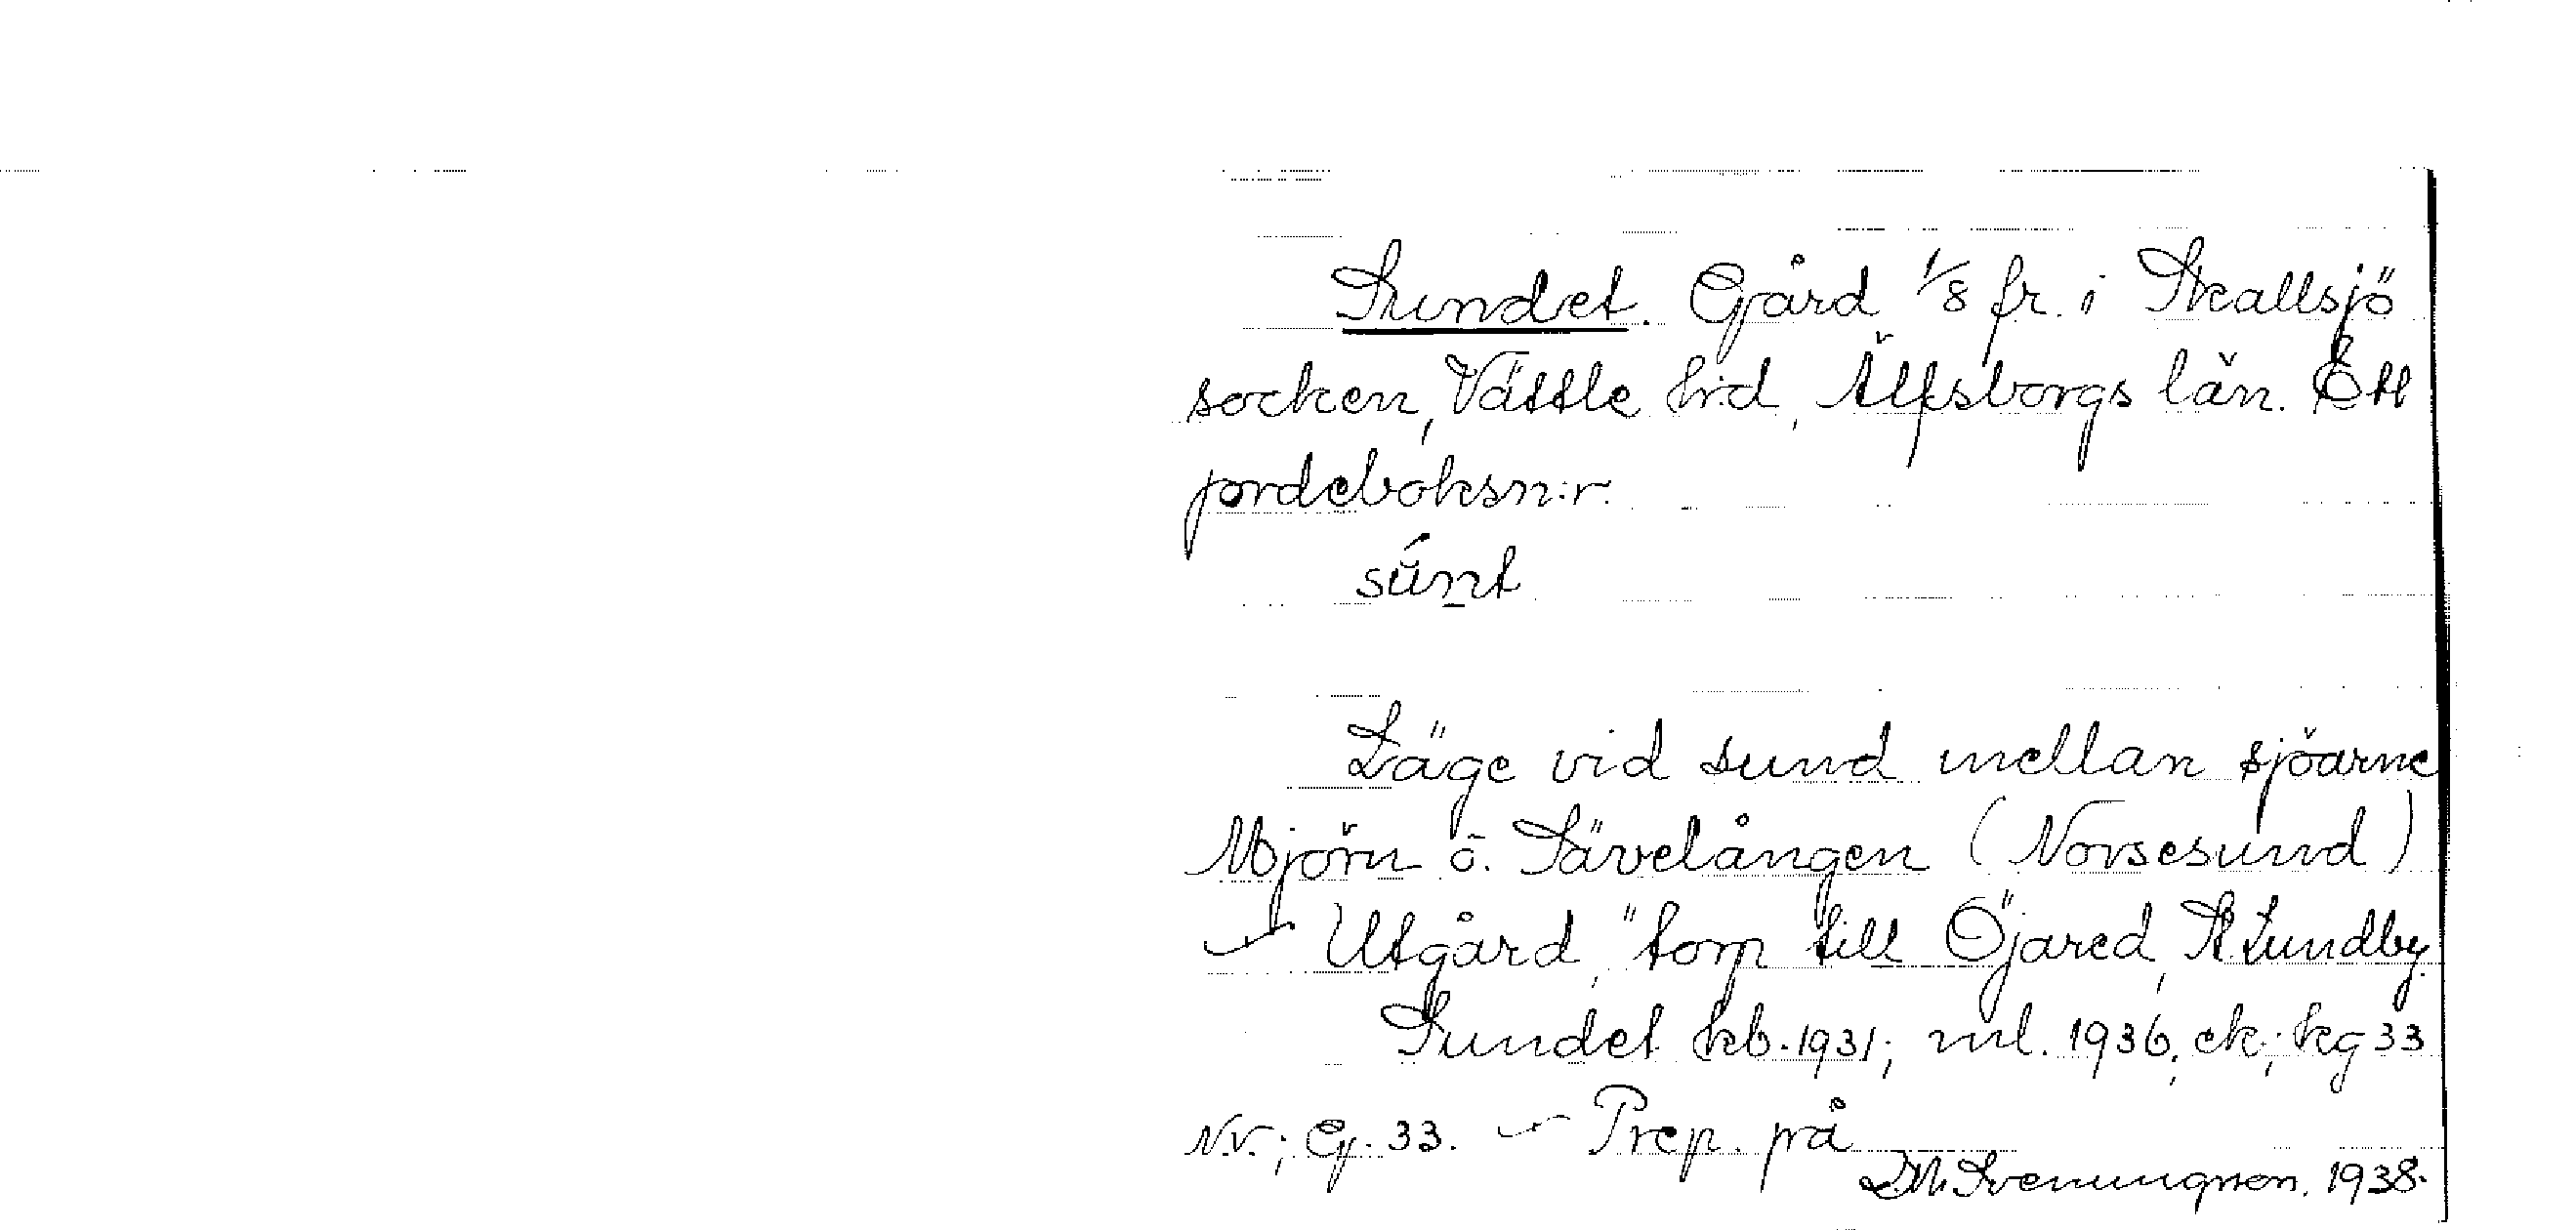 Sundet. Gård 1/8 fr. i Skallsjö
socken, Vättle hrd, Älfsborgs län. Ett
jordeboksn:r.
sunt
Läge vid sund mellan sjöarne
Mjörn o. Sävelången (Norsesund)
Utgård, "torp till Öjared, St Lundby.
Sundet kb. 1931; ml. 1936, ek; kg 33
N.v.; G. 33. – Prep. på
D.M. Svenungsson. 1938.